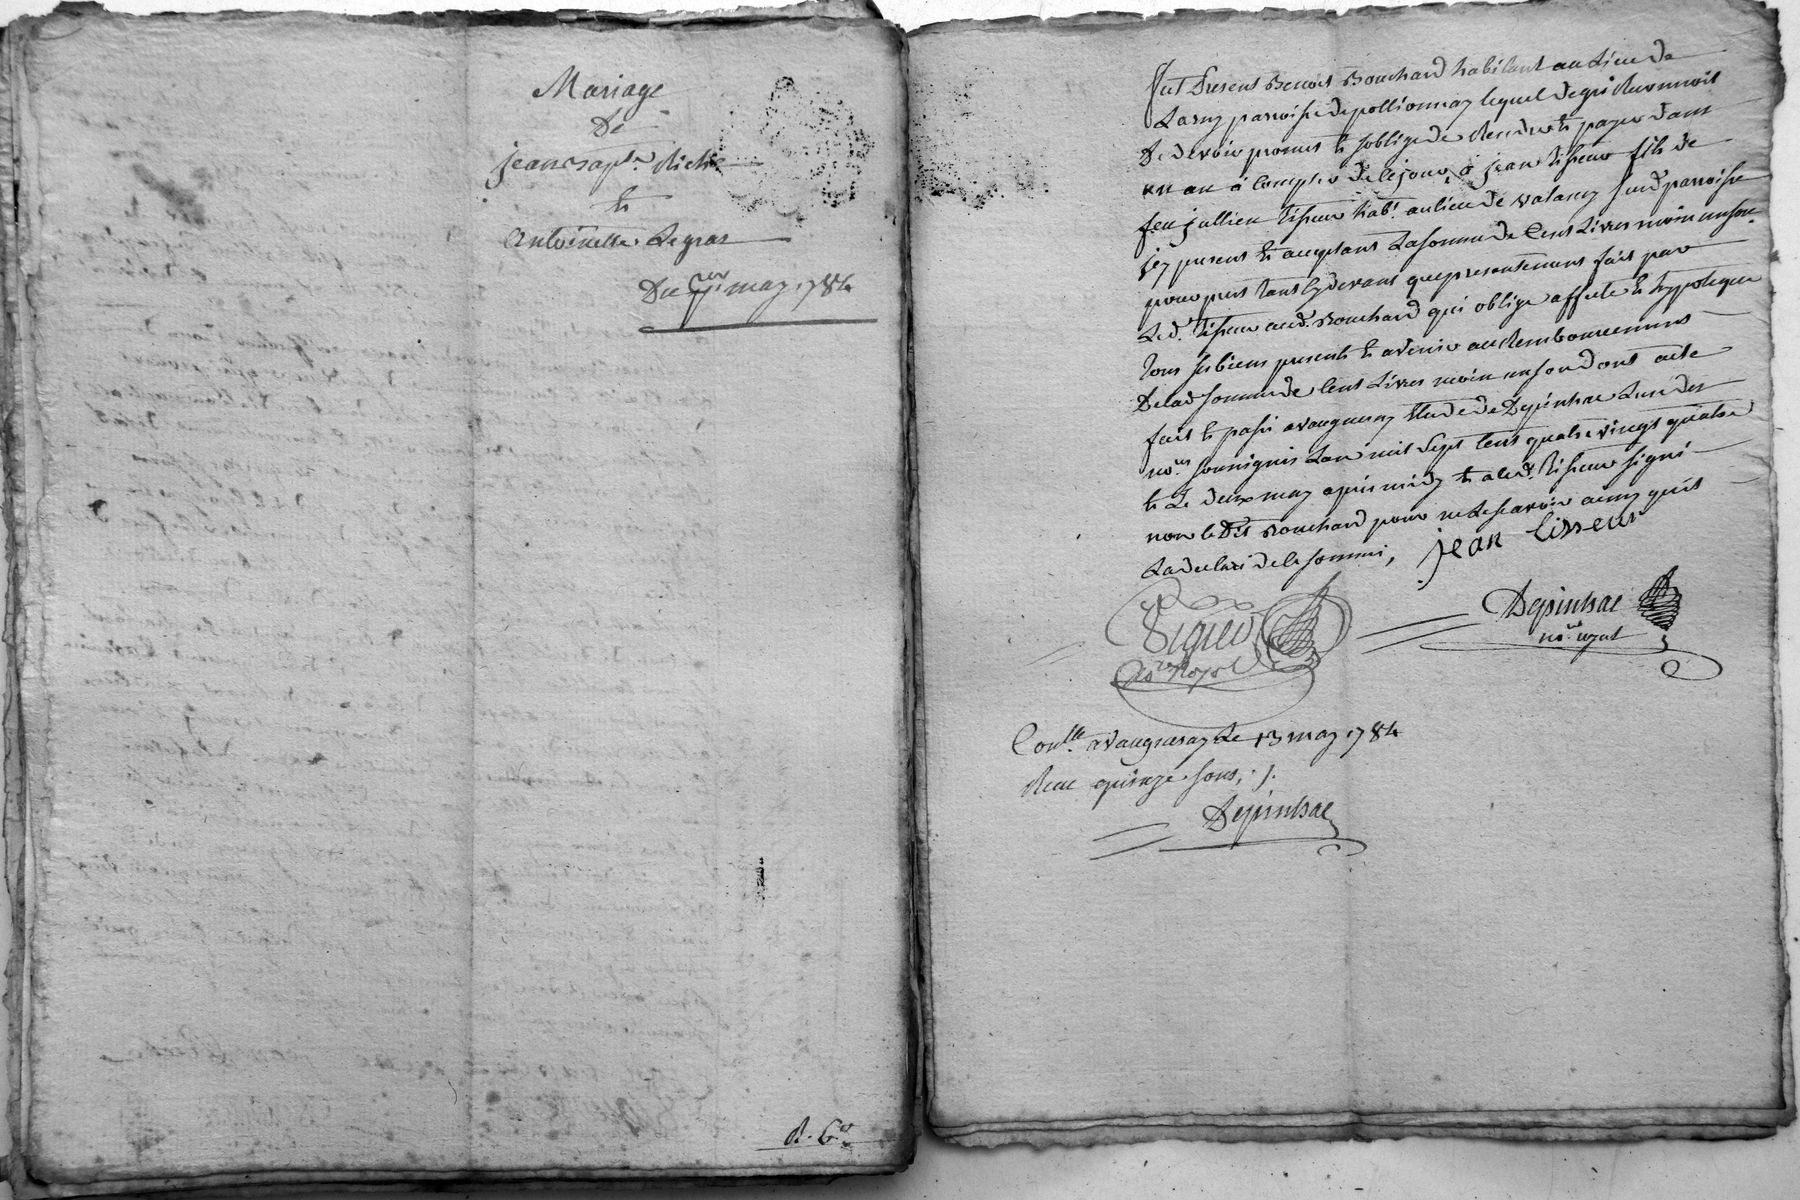 Mariage
De
jean Bapte. Riche
et
antoinette Legras
Du 1er. may 1784
R. Gé
Fut Present Benoit Bouchard habitant au Lieu de
Larny parroisse de pollionnay lequel de gré Reconnoit
De devoir promet et soblige de Rendre et payer dans
un an a Compter de ce jour, a jean tisseur fils de
feu jullien tisseur habt. au lieu de valancy susd parroisse
jcy present et acceptant La somme de Cent Livres moin un sou
pour pret tant cydevant que presentement fait par
Led. tisseur aud. Bouchard qui oblige affecte et hypoteque
tous ses biens presents et avenir au Remboursement
De lad somme de Cent Livres moin un sou dont acte
fait et passé a vaugneray Etude de Depinhac Lun des
nores. soussignés Lan mil sept Cent quatre vingt quatre
et Le deux may apres midy et a led. tisseur signé
non le Dit Bouchard pour ne Le scavoir ainsy quil
La declaré de ce sommé,
jean tisseur
nore. Royal
Depinhac
nore. royal
Conllé. a vaugneray Le 13 may 1784
Reçu quinze sous,
Depinhac